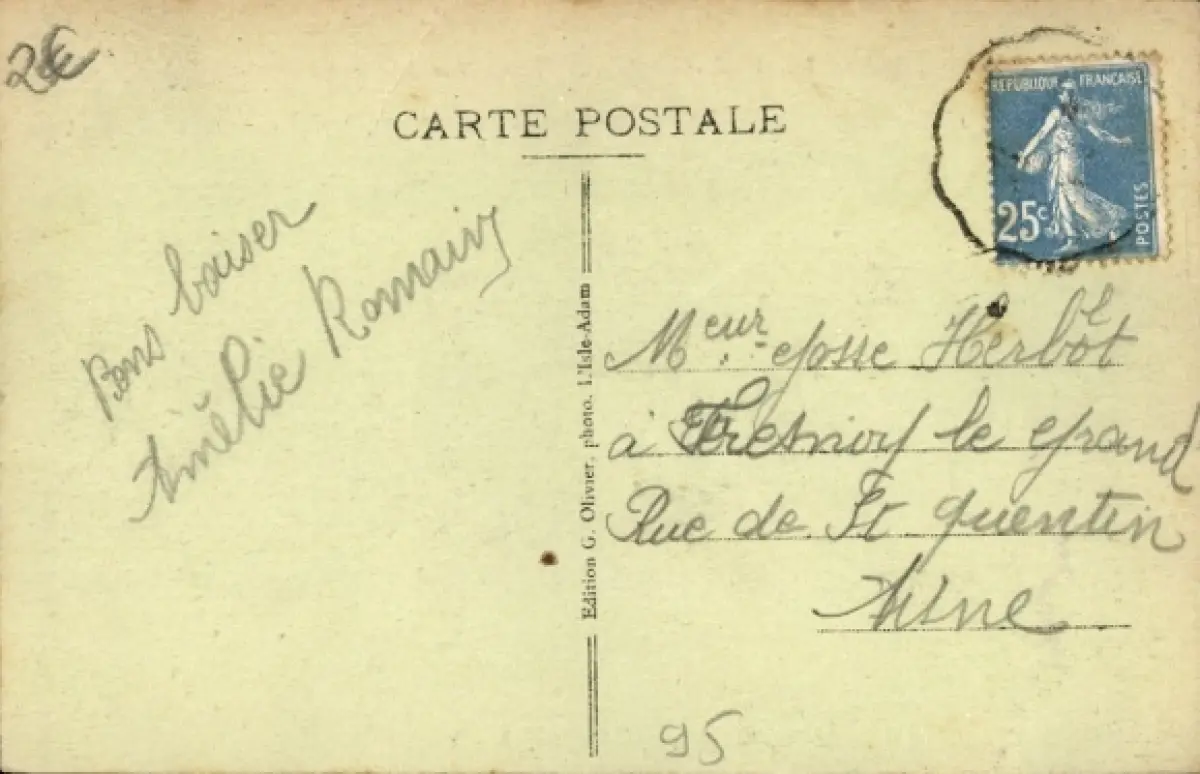 2€
CARTE POSTALE
REPUBLIQUE FRANÇAISE
25c
POSTES
Bons baiser
Amélie Romain
Edition G. Olivier, photo. L'Isle-Adam
Meur Josse Herbot
à Fresnoy le grand
Rue de St quentin
Aisne
95